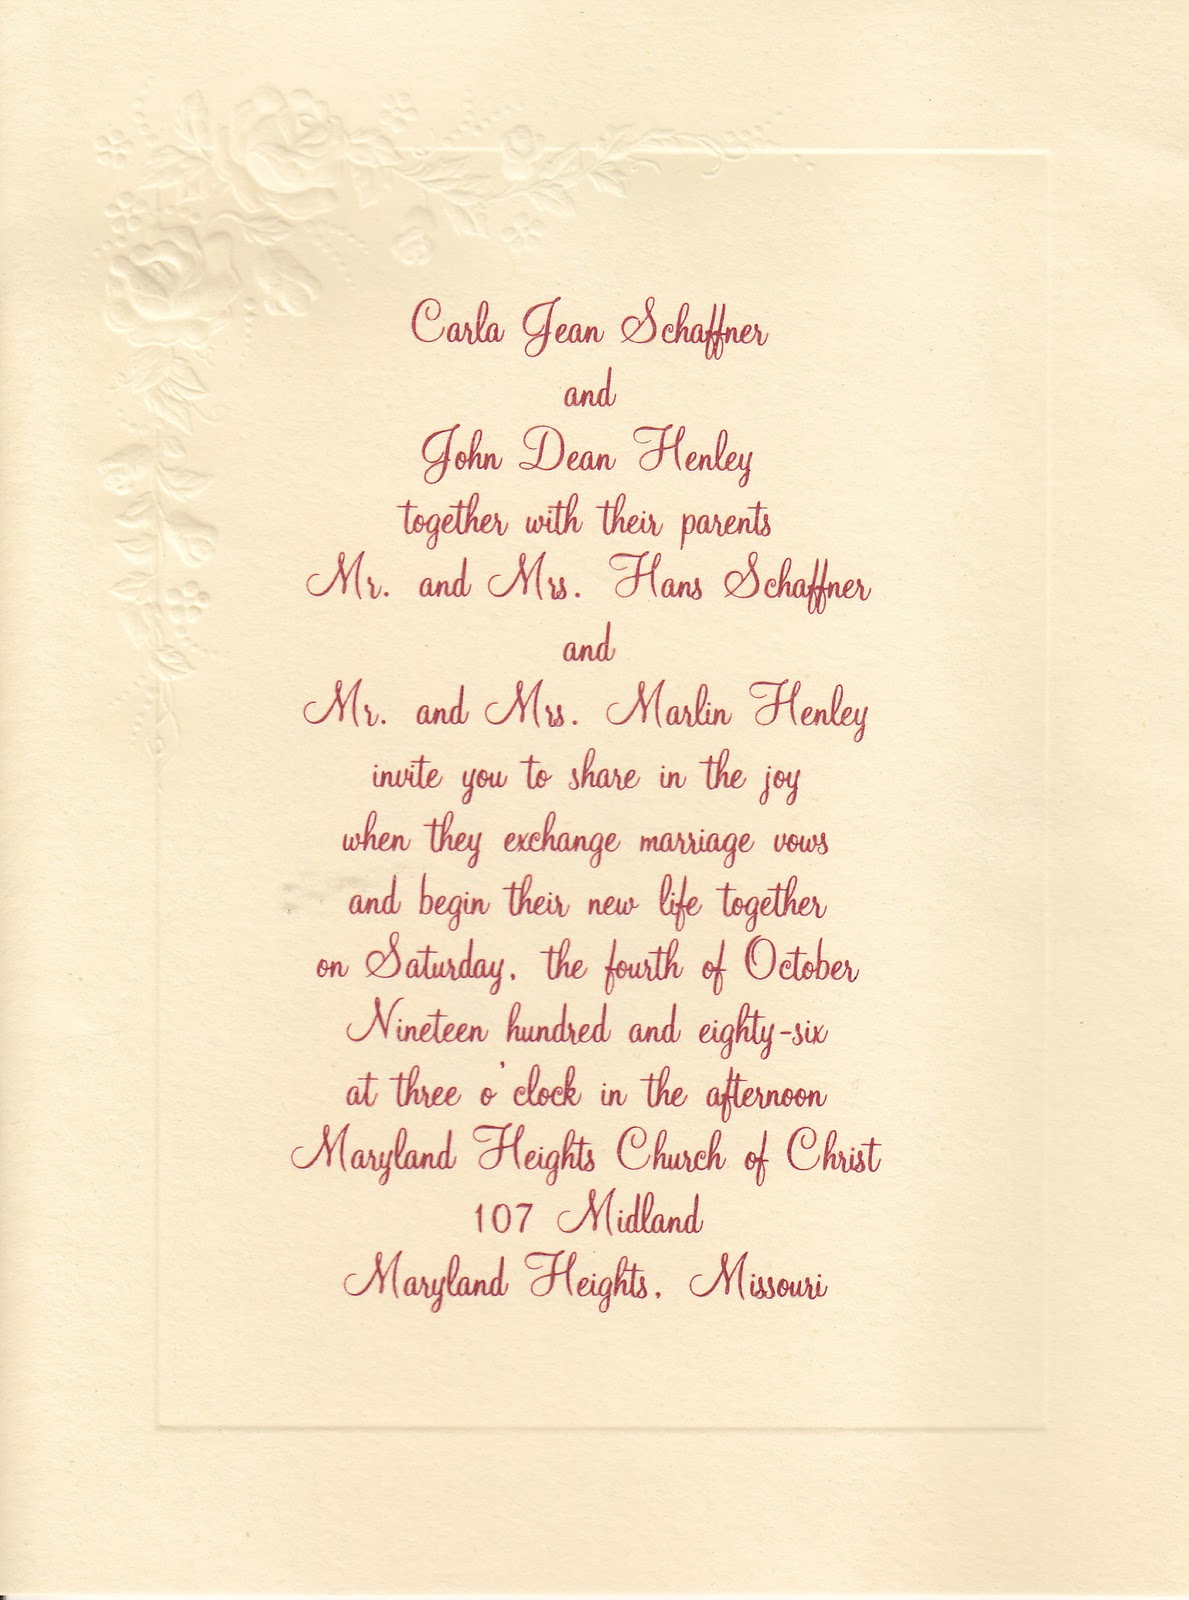 Carla Jean Schaffner
and
John Dean Henley
together with their parents
Mr. and Mrs. Hans Schaffner
and
Mr. and Mrs. Marlin Henley
invite you to share in the joy
when they exchange marriage vows
and begin their new life together
on Saturday, the fourth of October
Nineteen hundred and eighty-six
at three o'clock in the afternoon
Maryland Heights Church of Christ
107 Midland
Maryland Heights, Missouri